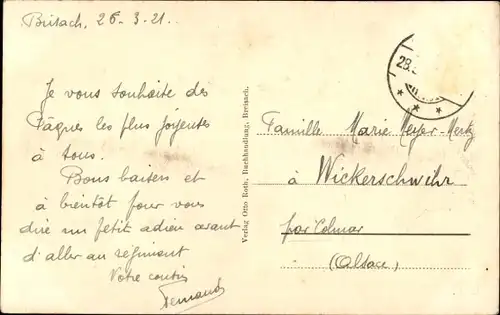 Brisach, 26-3-21.
Je vous souhaite des
Pâques les plus joyeuses
à tous.
Bons baisers et
à bientôt pour vous
dire un petit adieu avant
d'aller au régiment
Votre cousin
Fernand
Verlag Otto Roth, Buchhandlung, Breisach.
28.
Famille Marie Meyer-Mertz
à Wickerschwihr
par Colmar
(Alsace)